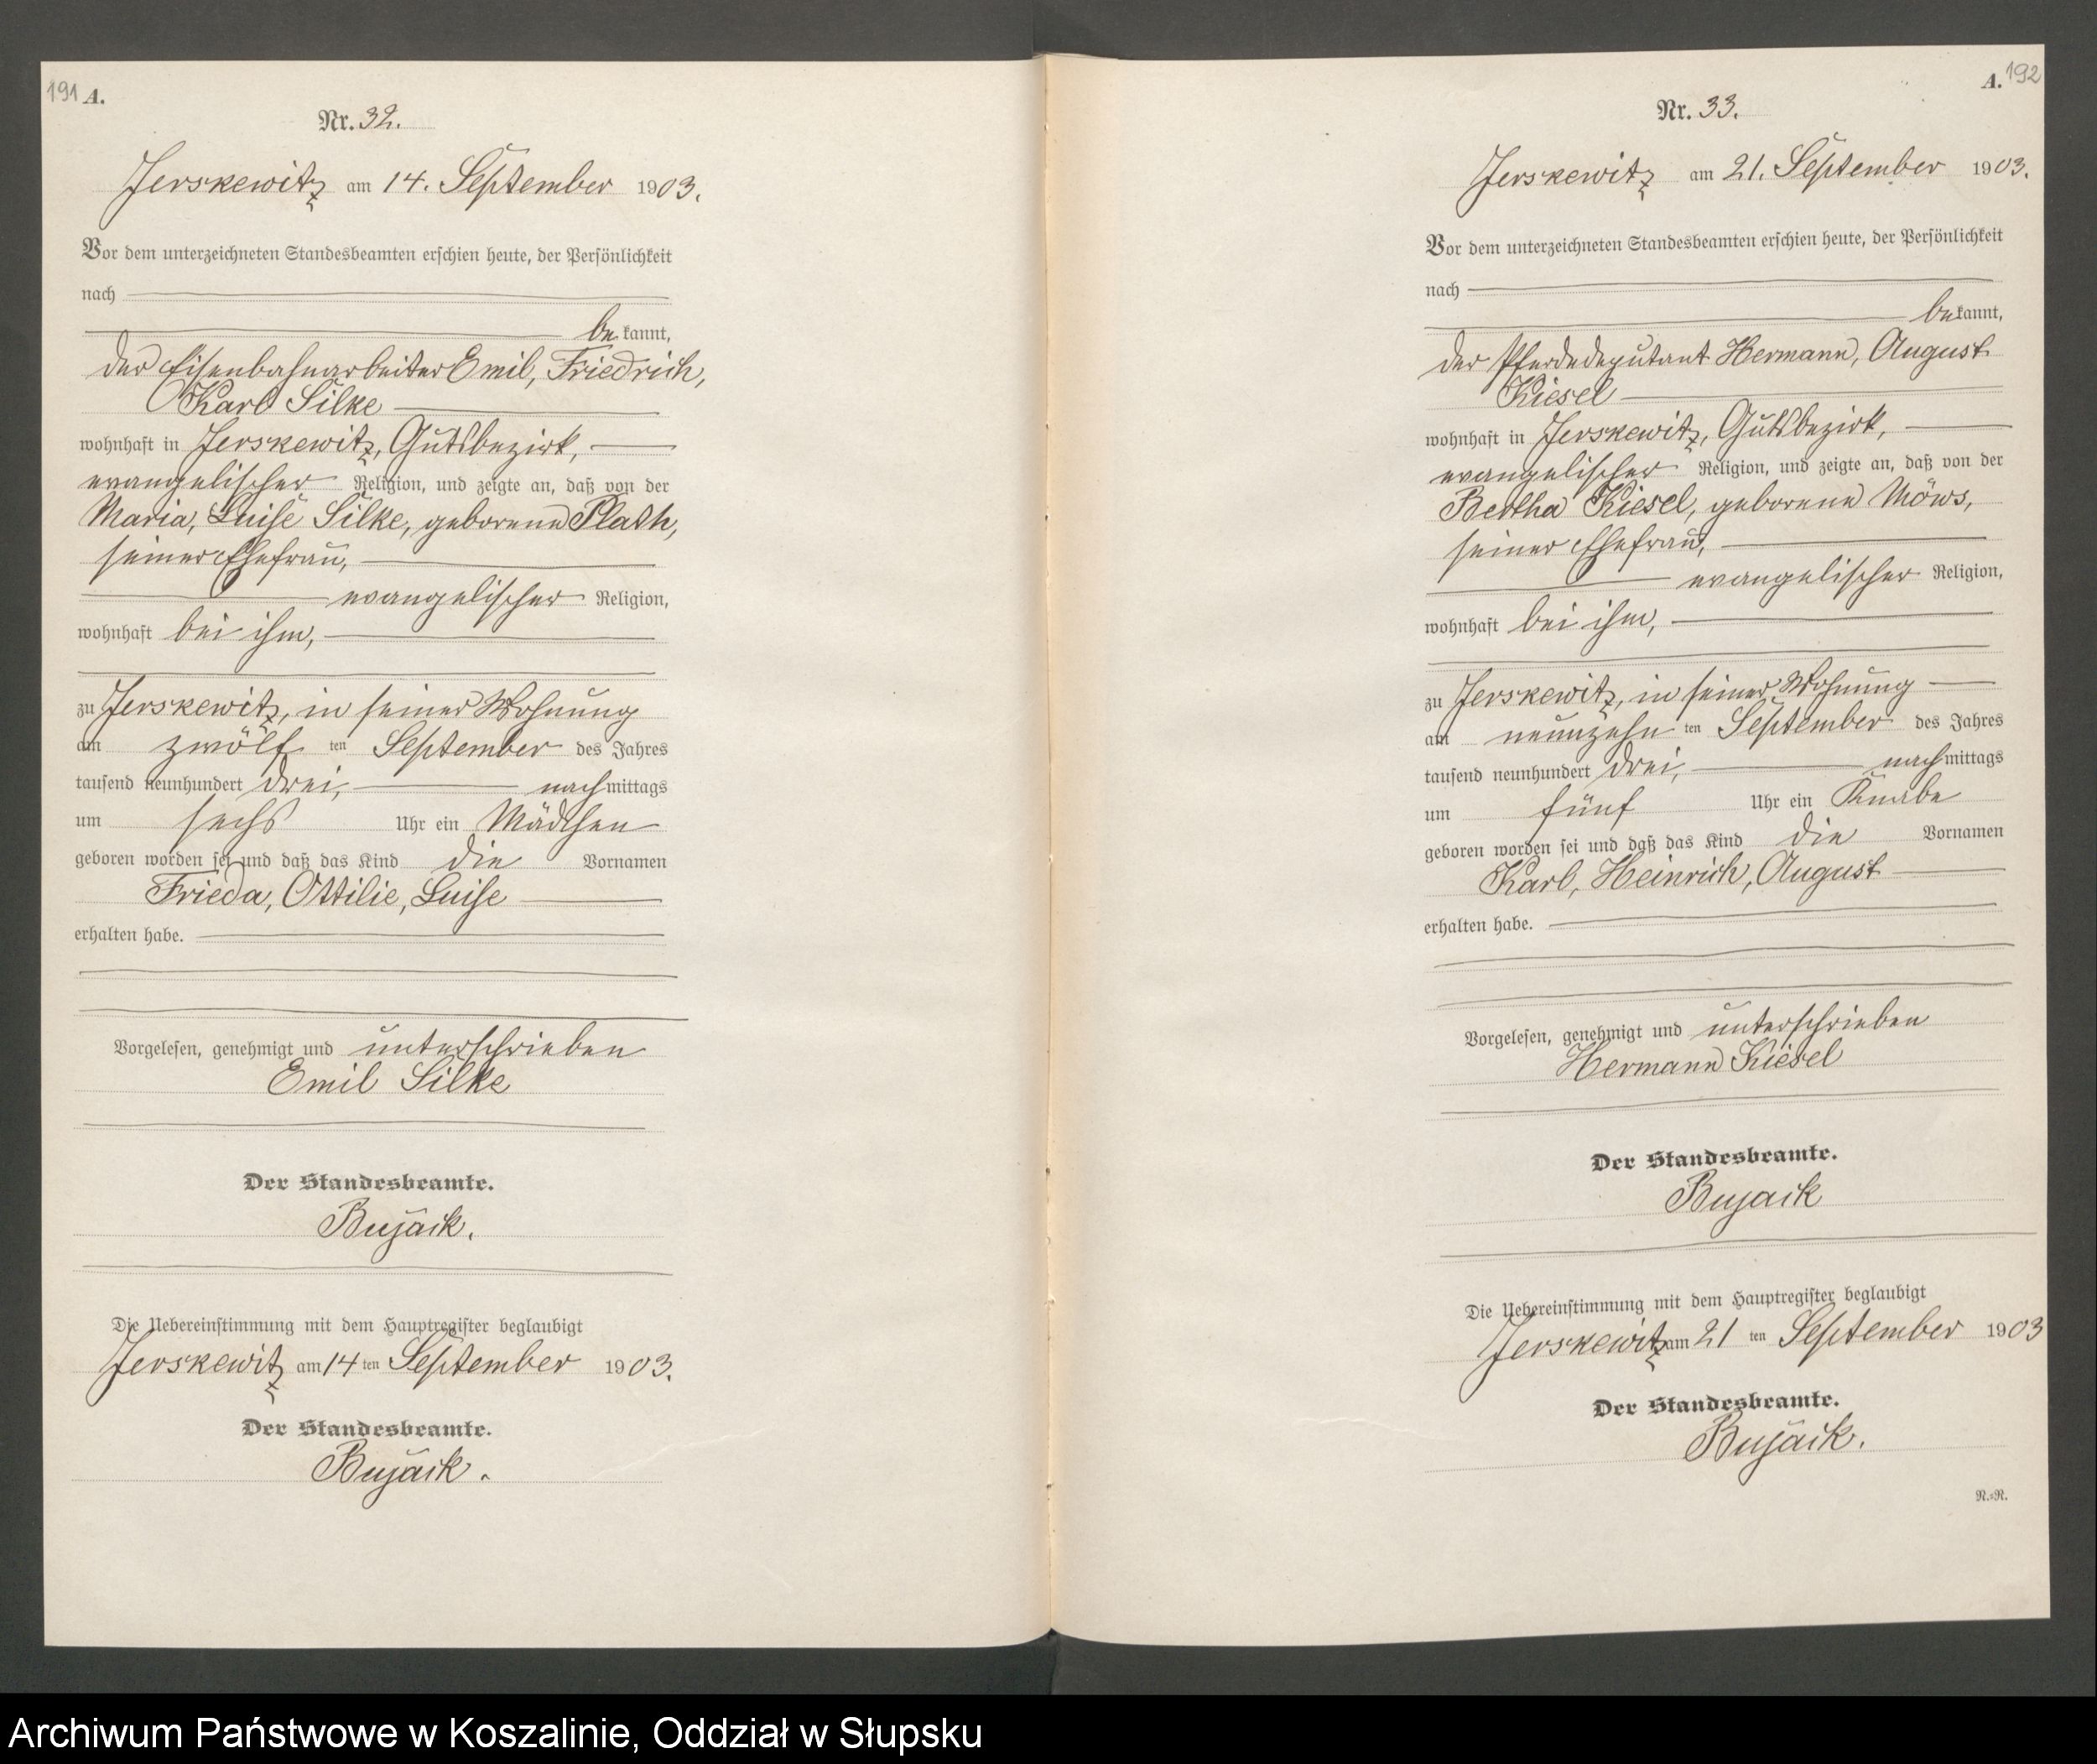 191 A.
Nr. 32.
Jerskewitz am 14. September 1903.
Vor dem unterzeichneten Standesbeamten erschien heute, der Persönlichkeit
nach
be kannt,
der Eisenbahnarbeiter Emil, Friedrich,
Karl Silke
wohnhaft in Jerskewitz, Gutsbezirk,
evangelischer Religion, und zeigte an, daß von der
Maria, Luise Silke, geborene Plath,
seiner Ehefrau,
evangelischer Religion,
wohnhaft bei ihm,
zu Jerskewitz, in seiner Wohnung
am zwölf ten September des Jahres
tausend neunhundert drei, nach mittags
um sechs Uhr ein Mädchen
geboren worden sei und daß das Kind die Vornamen
Frieda, Ottilie, Luise
erhalten habe.
Vorgelesen, genehmigt und unterschrieben
Emil Silke
Der Standesbeamte.
Bujack.
Die Uebereinstimmung mit dem Hauptregister beglaubigt
Jerskewitz am 14 ten September 1903.
Der Standesbeamte.
Bujack.
A. 192
Nr. 33.
Jerskewitz am 21. September 1903.
Vor dem unterzeichneten Standesbeamten erschien heute, der Persönlichkeit
nach
be kannt,
der Pferdedeputant Hermann, August
Kiesel
wohnhaft in Jerskewitz, Gutsbezirk,
evangelischer Religion, und zeigte an, daß von der
Bertha Kiesel, geborene Möws,
seiner Ehefrau,
evangelischer Religion,
wohnhaft bei ihm,
zu Jerskewitz, in seiner Wohnung
am neunzehn ten September des Jahres
tausend neunhundert drei, nach mittags
um fünf Uhr ein Knabe
geboren worden sei und daß das Kind die Vornamen
Karl, Heinrich, August
erhalten habe.
Vorgelesen, genehmigt und unterschrieben
Hermann Kiesel
Der Standesbeamte.
Bujack
Die Uebereinstimmung mit dem Hauptregister beglaubigt
Jerskewitz am 21 ten September 1903
Der Standesbeamte.
Bujack.
R.=R.
Archiwum Państwowe w Koszalinie, Oddział w Słupsku